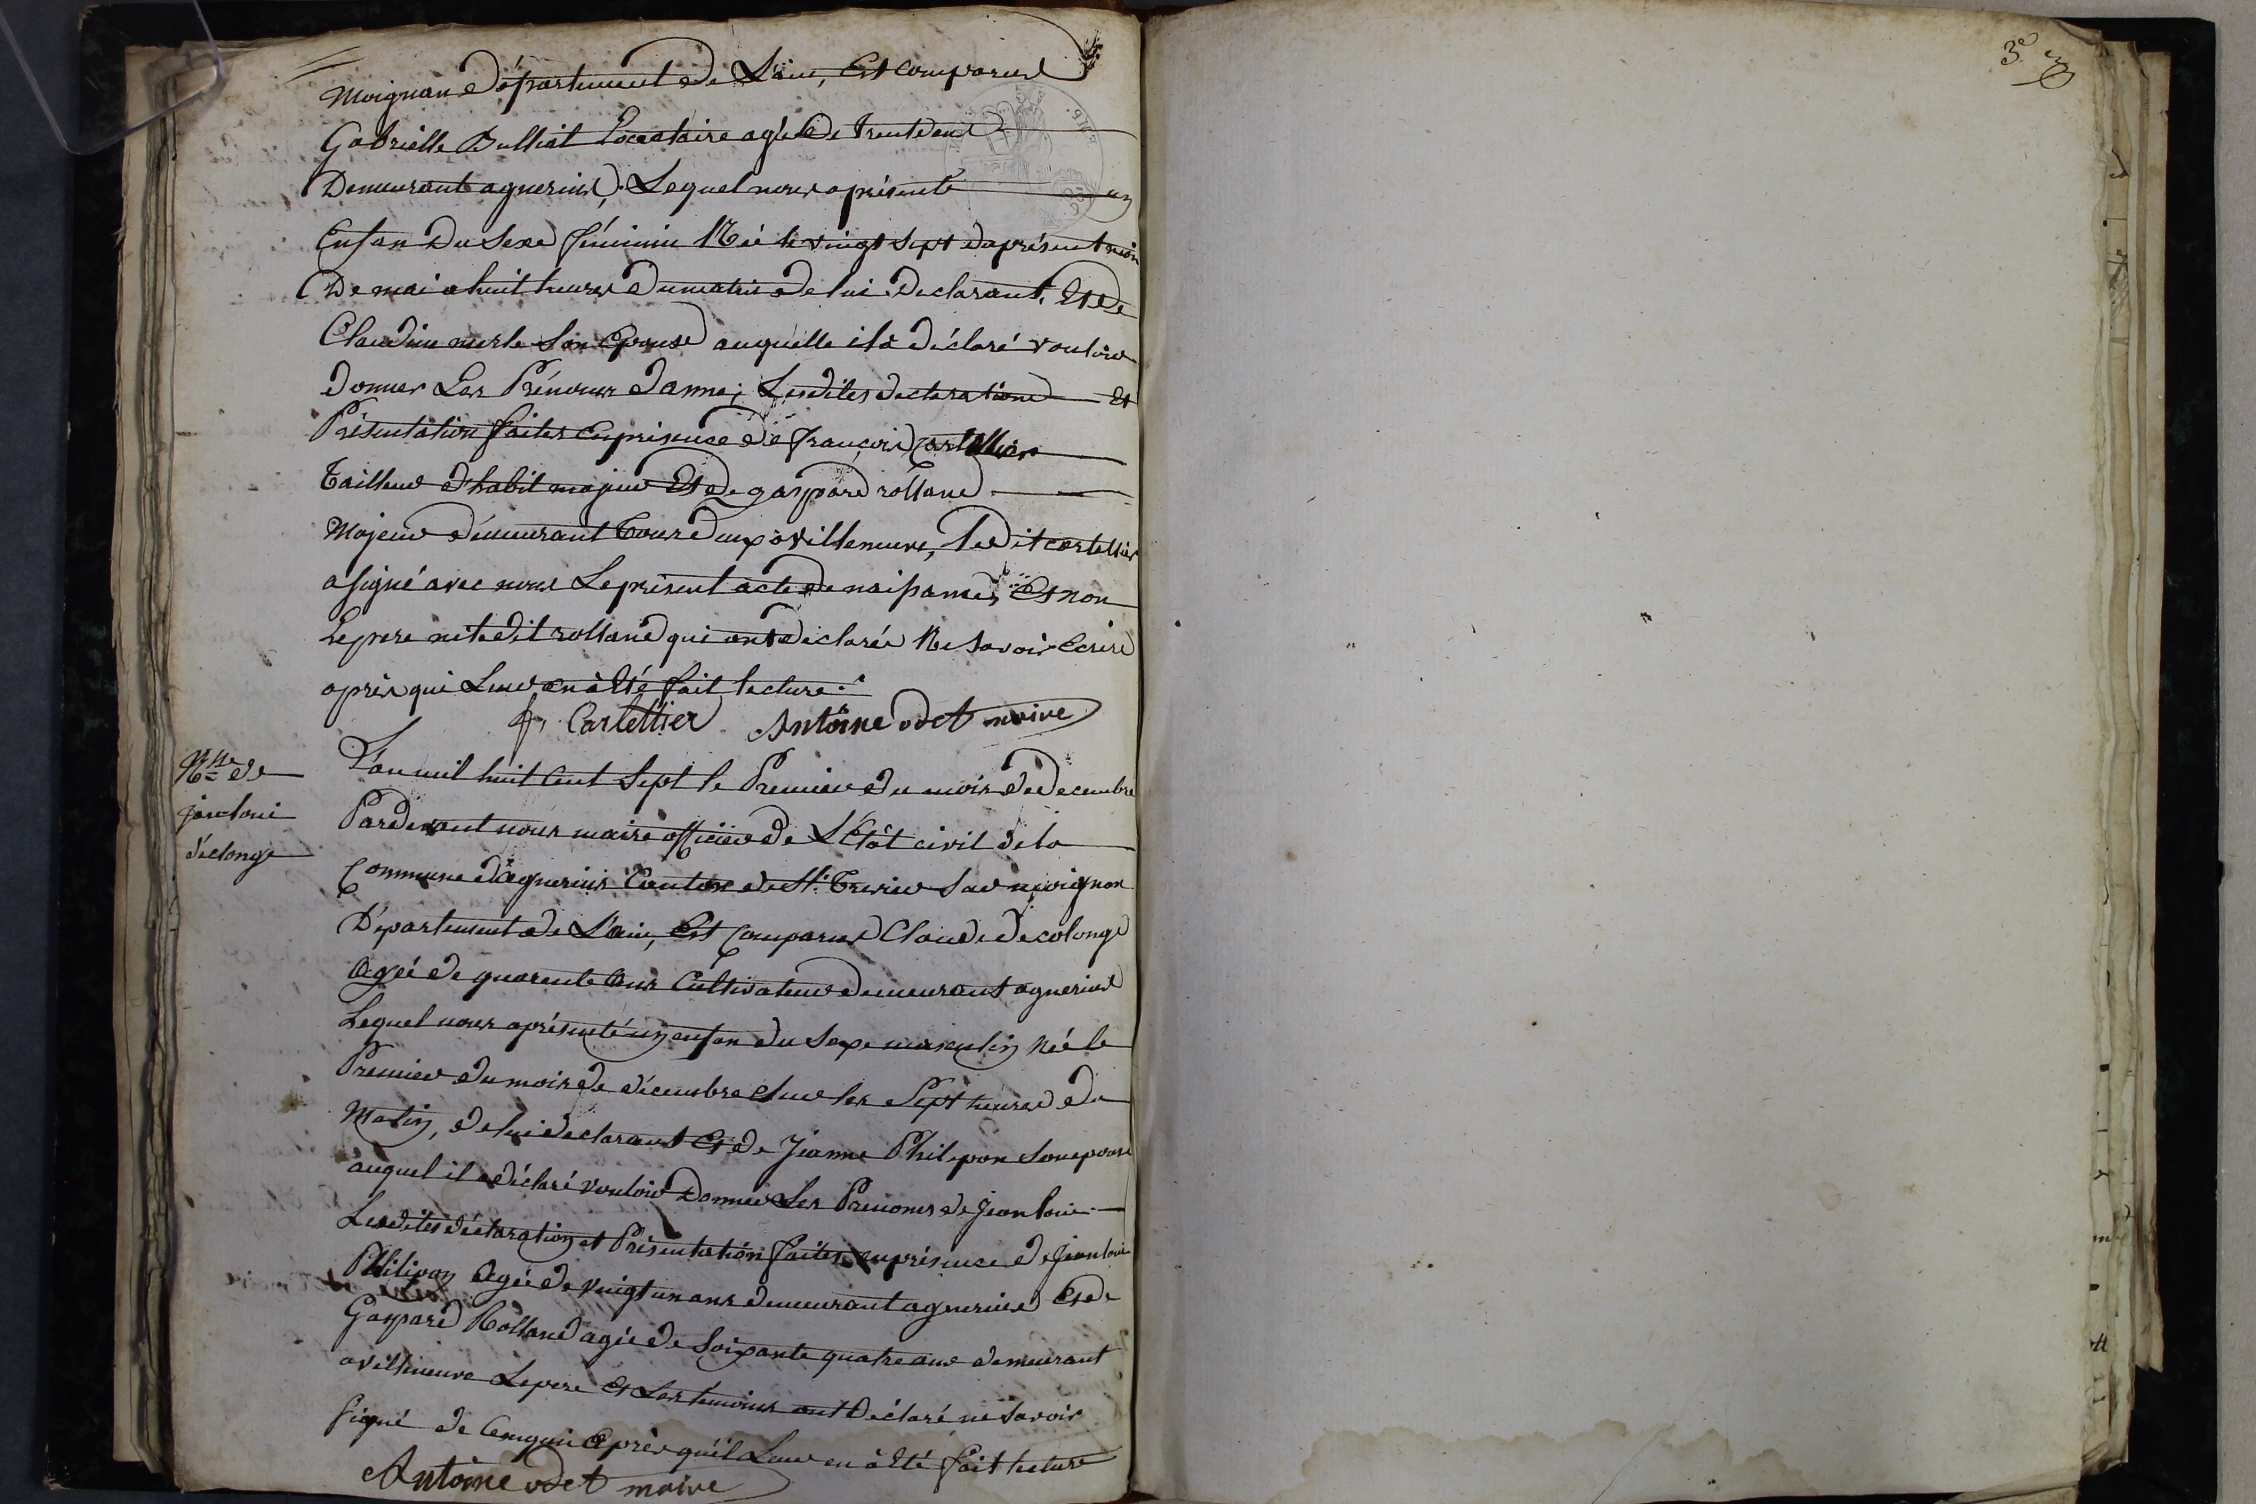 moignan Département de L'ain, Est comparus
Gabrielle Bulliat Locataire agée De trente ans
Demeurant agnerins, Lequel nous a présenté un
Enfan Du Sexe féminin Née le vingt Sept du présent mois
De mai a huit heures Du matin de lui Declarant, Et De
Claudine merle Son Epouse auquelle il à Déclaré vouloir
donner Les Prénoms d'anne; Lesdites declarations Et
Présentation faites En présence de françois Cartellier
Tailleur d'habit majeur Et De gaspard rolland
Majeur démeurant Tous deux à villeneuve, Ledit cartellier
a signé avec nous Le présent acte De naissance, Et non
Le pere ni Ledit rolland qui ont déclarés Ne savoir Ecrire
après qui Leur en à Eté fait lecture.
f. Cartellier Antoine odet maire
Nce de
jean loui
décolonge
L'an mil huit Cent Sept le Premier du mois de Decembre
Pardevant nous maire officier de L'Etât civil de la
Commune d'agnerins Canton de St. Trivier Sur moignan
Département de L'ain, Est Comparus Claude Decolonge
Agée de quarente Ans Cultivateur demeurant agnerins
Lequel nous a présenté un enfan du Sexe masculin Née le
Premier du mois de décembre Sur les Sept heures du
Matin, de lui declarant Et de Jeanne Philipon Son epouse
auquel il a déclaré vouloir Donner Les Prenoms de jean loui
Lesdites déclaration et Présentation faites en présence de jean loui
Philipon Agée de Vingt un ans demeurant agnerins Et de
Gaspard Rolland agée de Soixante quatre ans demeurant
a villeneuve Le pere Et Les temoins ont Déclaré ne Savoir
signé de Cenquis Après quil Leur en à Eté fait lecture
Antoine odet maire
3e